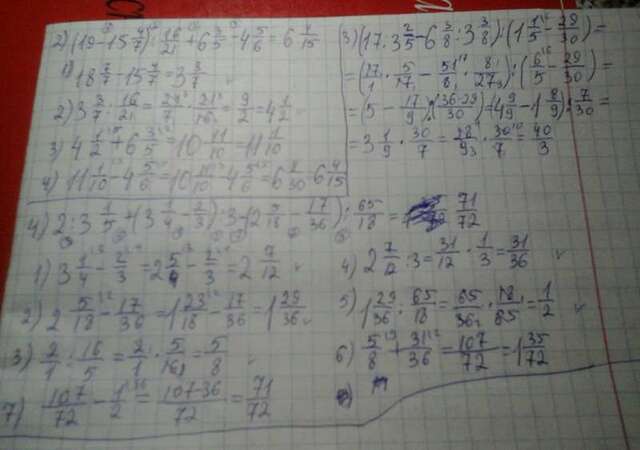 2) (19-15 4/7) : 16/21 + 6 3/5 - 4 5/6 = 6 4/15
1) 18 7/7 - 15 4/7 = 3 3/7
2) 3 3/7 : 16/21 = 24/7 · 21/16 = 9/2 = 4 1/2
3) 4 1/2 + 6 3/5 = 10 11/10 = 11 1/10
4) 11 1/10 - 4 5/6 = 10 11/10 - 4 5/6 = 6 8/30 = 6 4/15
3) (17 : 3 2/5 - 6 3/8 : 3 3/8) : (1 1/5 - 29/30) =
= (17/1 · 5/17 - 51/8 · 8/27) : (6/5 - 29/30) =
= (5 - 17/9) : (36-29/30) = (4 9/9 - 1 8/9) : 7/30 =
= 3 1/9 · 30/7 = 28/9 · 30/7 = 40/3
4) 2 : 3 1/5 + (3 1/4 - 2/3) : 3 - (2 5/18 - 17/36) : 65/18 = 71/72
1) 3 1/4 - 2/3 = 2 5/4 - 2/3 = 2 7/12
2) 2 5/18 - 17/36 = 1 23/18 - 17/36 = 1 29/36
3) 2/1 : 16/5 = 2/1 · 5/16 = 5/8
4) 2 7/12 : 3 = 31/12 · 1/3 = 31/36
5) 1 29/36 : 65/18 = 65/36 · 18/65 = 1/2
6) 5/8 + 31/36 = 107/72 = 1 35/72
7) 107/72 - 1/2 = 107-36/72 = 71/72